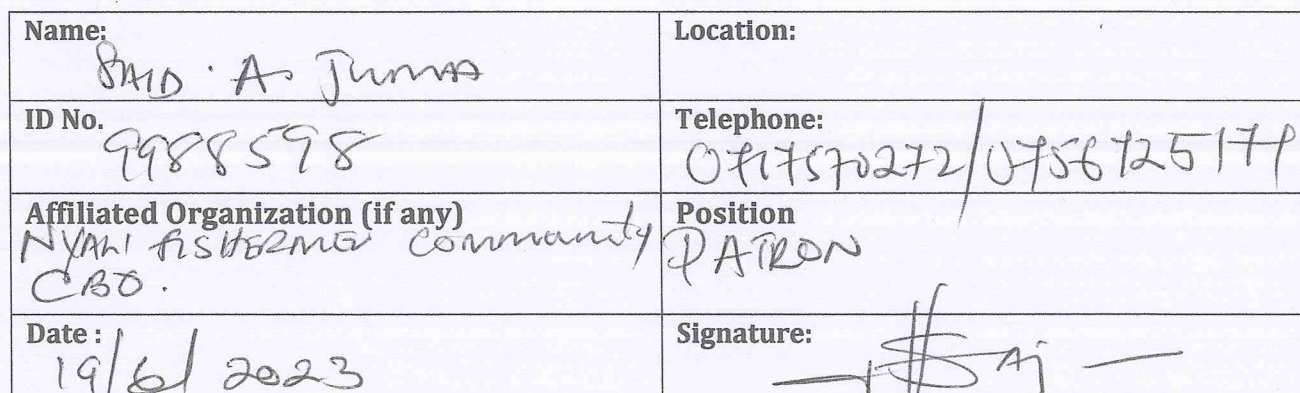 Name:
SAID . A. JUMAA
Location:
ID No.
9988598
Telephone:
0717570272/0756125171
Affiliated Organization (if any)
NYALI FISHERMEN Community
CBO.
Position
PATRON
Date :
19/6/2023
Signature: